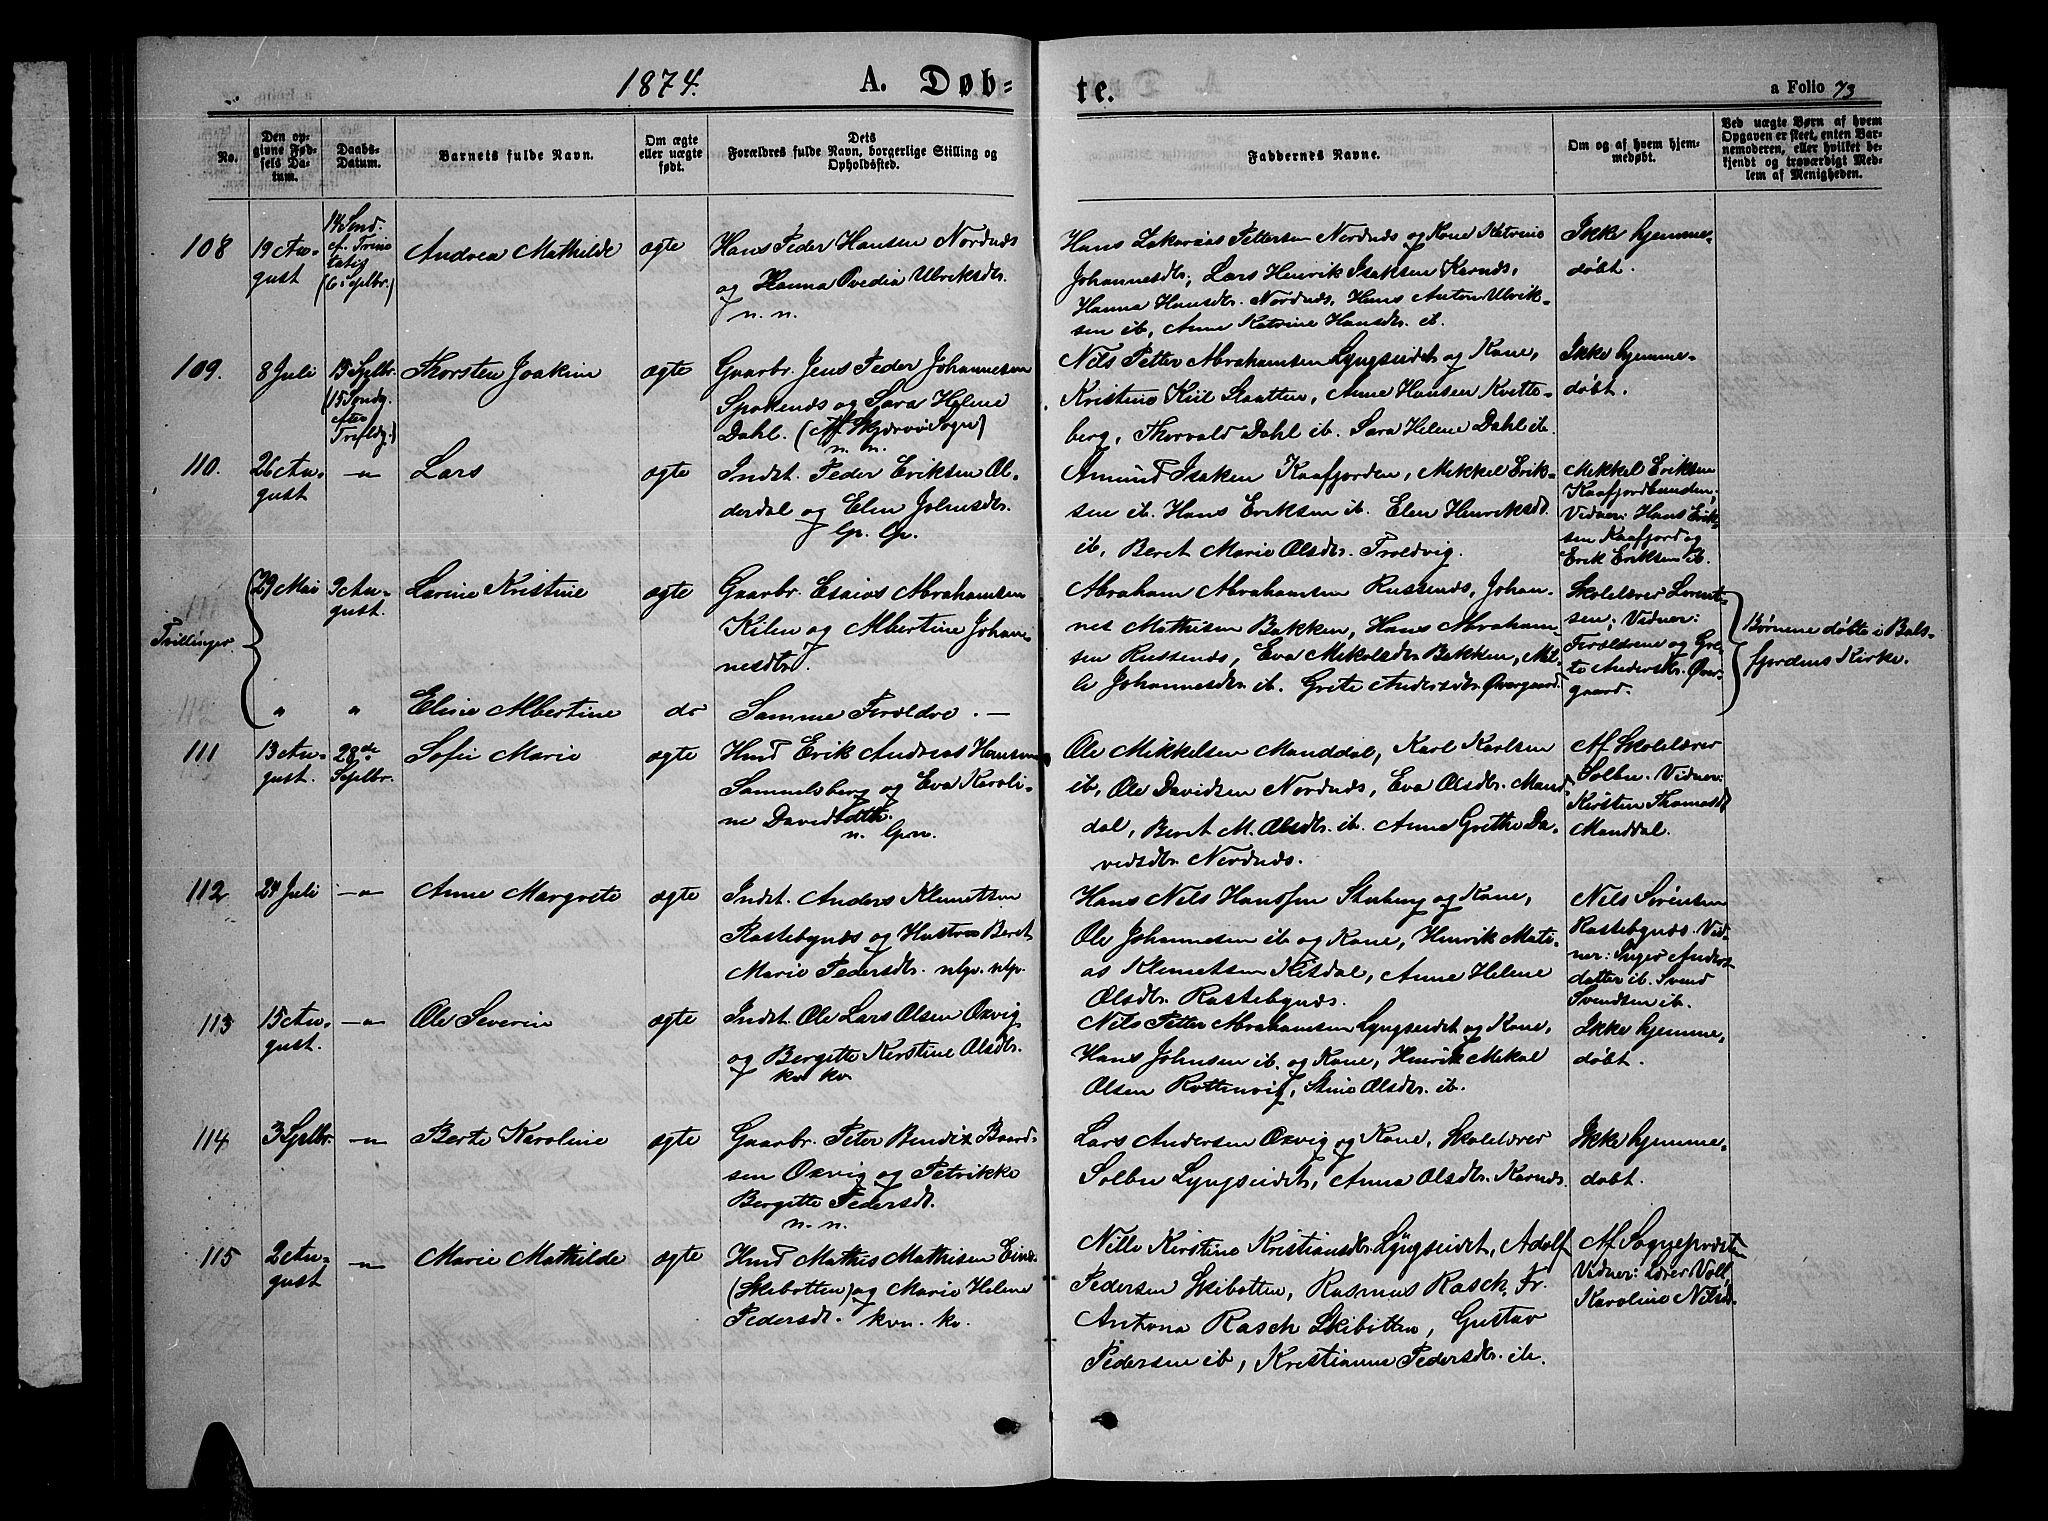 1874. A. Døb= te. a Folio 73
No.
Den opgivne Fødsels Datum.
Daabs-Datum.
Barnets fulde Navn.
Om ægte eller uægte født.
Dets Forældres fulde Navn, borgerlige Stilling og Opholdssted.
Faddernes Navne.
Om og af hvem hjemmedøbt.
Ved uægte Børn af hvem Opgaven er skeet, enten Barnemoderen, eller hvilket bekjendt og troværdigt Medlem af Menigheden.
108
19 Au-
gust
14 Sønd.
e. Trini
tatis
(6 Septbr.)
Andrea Mathilde
ægte
Hans Peder Hansen Nordnæs
og Hanna Ovedia Ulriksdtr.
n. n.
Hans Zakarias Pettersen Nordnæs og Kone Katrine
Johannesdtr., Lars Henrik Isaksen Karnæs,
Hanna Hansdtr. Nordnæs, Hans Anton Ulrik-
sen ib, Anne Katrine Hansdtr. ib.
Ikke hjemme-
døbt.
109.
8 Juli
13 Septbr.
(15 Søndg.
efter
Trefoldg.)
Thorsten Joakim
ægte
Gaarbr. Jens Peder Johannesen
Spokenæs og Sara Helene
Dahl. (Af Skjærvø Sogn)
n. n.
Nils Petter Abrahamsen Lyngseidet og Kone,
Kristine Kiil Slaatten, Anne Hansen Kvitte-
berg, Thorvald Dahl ib. Sara Helene Dahl ib.
Ikke hjemme-
døbt.
110.
26 Au-
gust
—"—
Lars
ægte
Indst. Peder Eriksen Ol-
derdal og Elen Johnsdtr.
lp. lp.
Amund Isaksen Kaafjorden, Mikkel Erik-
sen ib. Hans Eriksen ib. Elen Henriksdt.
ib, Beret Marie Olsdtr. Troldvig.
Mikkel Eriksen
Kaafjordbunden;
Vidner: Hans Erik-
sen Kaafjord og
Erik Eriksen ib.
Tvillinger.
29 Mai
9 Au-
gust.
Larine Kristine
ægte
Gaarbr. Esaias Abrahamsen
Kilen og Albertine Johan-
nesdtr.
Abraham Abrahamsen Russenæs, Johan-
nes Mathisen Bakken, Hans Abraham-
sen Russenæs, Eva Mikolsdtr Bakken, Mil-
li Johannesdtr. ib. Grete Andersdtr. Øvergaard.
Skolelærer Lorent-
sen; Vidner:
Forældrene og Gre-
te Andersdtr. Øver-
gaard.
Børnene døbte i Bals-
fjordens Kirke.
" "
Eline Albertine
do
Samme Forældre. —
111
13 Au-
gust.
28de
Septbr.
Sofie Marie
ægte
Husm. Erik Andreas Hansen
Sammelsberg og Eva Karoli-
ne Davidsdtr.
n. lpn.
Ole Mikkelsen Manddal, Karl Karlsen
ib, Ole Davidsen Nordnæs, Eva Olsdtr. Mand-
dal, Beret M. Olsdtr. ib. Anne Grethe Da-
vidsdtr. Nordnæs.
Af Skolelærer
Solbu. Vidner:
Kirsten Thomasdt
Manddal.
112
24 Juli
—"—
Anne Margrete
ægte
Indst. Anders Klemetsen
Rastebynæs og Hustru Beret
Marie Pedersdtr. nlp. nlp.
Hans Nils Hanssen Stuberg og Kone,
Ole Johannesen ib og Kone, Henrik Mati-
as Klemetsen Kitdal, Anne Helene
Olsdtr. Rastebynæs.
Nils Sørensen
Rastebynæs. Vid-
ner: Inger Anders-
datter ib. Svend
Svendsen ib.
113
15 Au-
gust.
—"—
Ole Severin
ægte
Indst. Ole Lars Olsen Oxvig
og Bergitte Kerstine Olsdtr.
kv. kv.
Nils Petter Abrahamsen Lyngseidet og Kone,
Hans Johnsen ib. og Kone, Henrik Mekal
Olsen Rottenvig, Stine Olsdtr. ib.
Ikke hjemme-
døbt.
114
3 Septbr.
—"—
Berte Karoline
ægte
Gaarbr. Peter Bendix Baard-
sen Oxvig og Petrikke
Bergitte Pedersdt.
n. n.
Lars Andersen Oxvig og Kone, Skolelærer
Solbu Lyngseidet, Anna Olsdtr. Karnæs.
Ikke hjemme-
døbt.
115
2 Au-
gust
—"—
Marie Mathilde
ægte
Husm. Mathis Mathisen
(Skibotten) og Marie Helene
Pedersdt. kvn. kv.
Nille Kerstine Kristiansdtr. Lyngseidet, Adolf
Pedersen Skibotten, Rasmus Rasch, Fr.
Antona Rasch Skibotten, Gustav
Pedersen ib, Kristianne Pedersdtr. ib.
Af Sognepræsten
Vidner: Lærer Voll,
Karoline Nilsd.